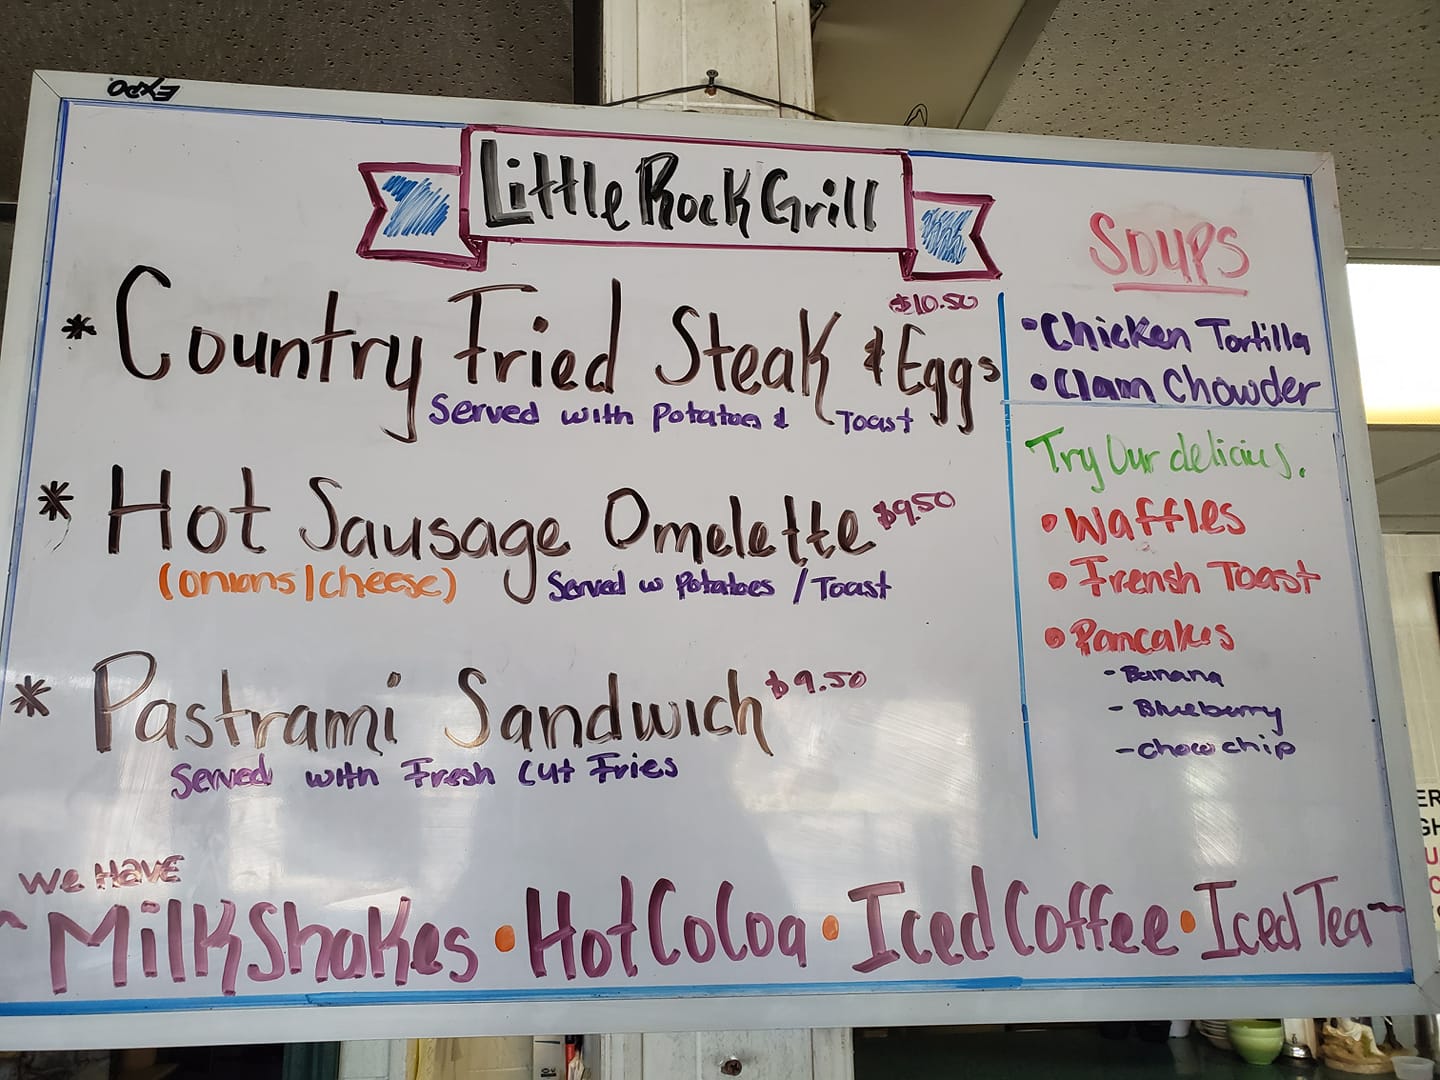 EXPO
Little Rock Grill
* Country Fried Steak & Eggs $10.50
Served with Potatoes & Toast
* Hot Sausage Omelette $9.50
(onions/cheese) Served w Potatoes / Toast
* Pastrami Sandwich $9.50
Served with Fresh Cut Fries
Soups
• Chicken Tortilla
• Clam Chowder
Try Our delicius.
• Waffles
• Frensh Toast
• Pancakes
- Banana
- Blueberry
- chow chip
We Have
~ MilkShakes • Hot CoCoa • Iced Coffee • Iced Tea ~